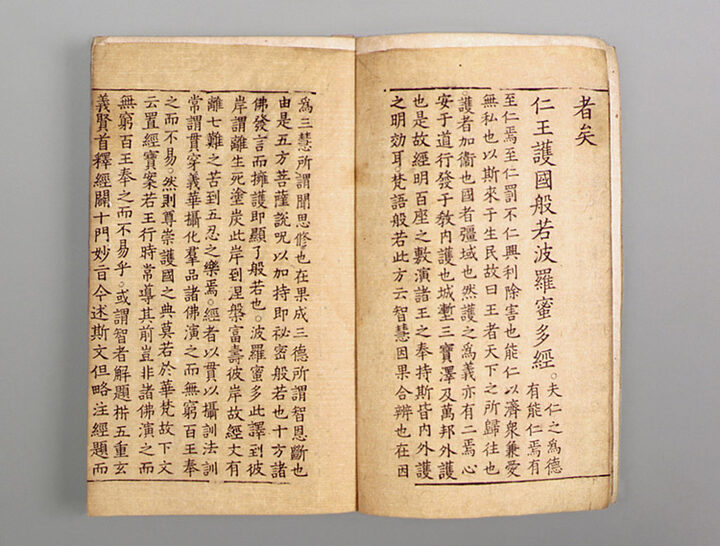 者矣
仁王護國般若波羅蜜多經。夫仁之為德
有能仁焉有
至仁焉至仁罰不仁興利除害也能仁以濟衆兼愛
無私也以斯来于生民故曰王者天下之所歸往也
護者加衞也國者彊域也然護之為義亦有二焉心
安于道行發于敎内護也城塹三寶澤及萬邦外護
也是故經明百座之敷演諸王之奉持斯皆内外護
之明効耳梵語般若此方云智慧因果合辨也在因
為三慧所謂聞思修也在果成三德所謂智恩斷也
由是五方菩薩說呪以加持即祕密般若也十方諸
佛發言而擁護即顯了般若也。波羅蜜多此譯到彼
岸謂離生死塗炭此岸到涅槃富壽彼岸故經文有
離七難之苦到五忍之樂焉。經者以貫以攝訓法訓
常謂貫穿義華攝化羣品諸佛演之而無窮百王奉
之而不易。然則尊崇護國之典莫若於華梵故下文
云置經寶案若王行時常導其前豈非諸佛演之而
無窮百王奉之而不易乎。或謂智者解題五重玄
義賢首釋經開十門妙旨今述斯文但略注經題而